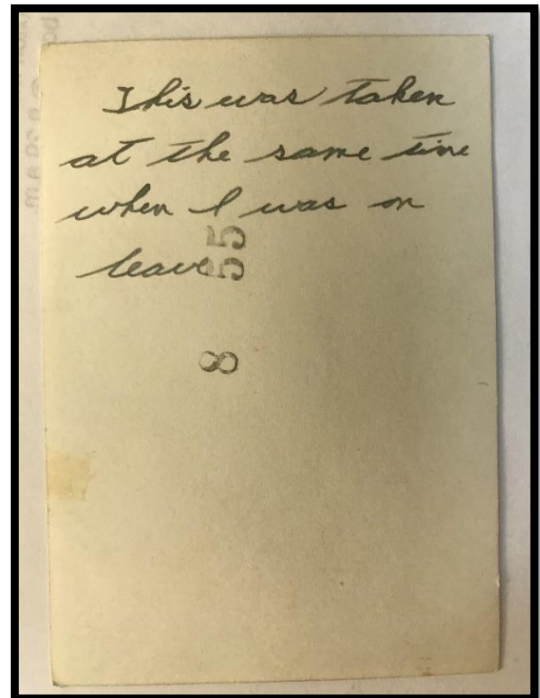 This was taken
at the same time
when I was on
leave
55
8